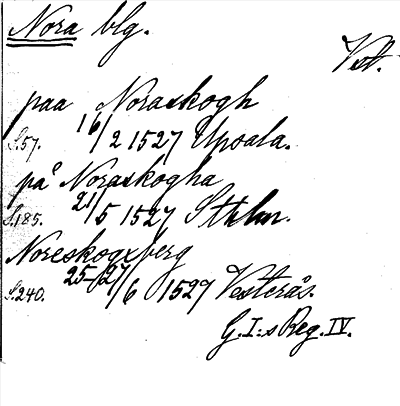 Nora blg.
Vst.
paa Noraskogh
S.57. 16/2 1527 Upsala.
på Noraskogha
S.185. 21/5 1527 Sthlm.
Noreskogxberg
S.240. 25-27/6 1527 Vesterås.
G.I:s Reg. IV.